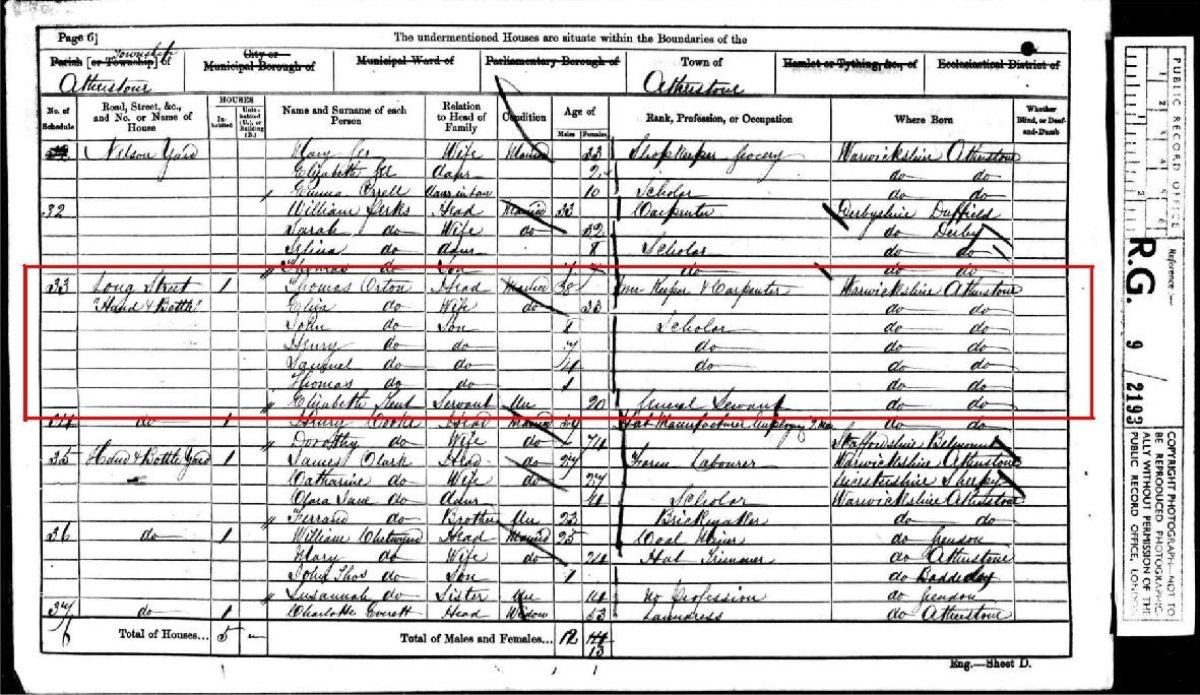 Page 6]
The undermentioned Houses are situate within the Boundaries of the
Township
Parish [or Township] of
City or Municipal Borough of
Municipal Ward of
Parliamentary Borough of
Town of
Hamlet or Tything, &c., of
Ecclesiastical District of
Atherstone Atherstone
No. of Schedule
Road, Street, &c., and No. or Name of House
HOUSES
Inhabited
Uninhabited (U.), or Building (B.)
Name and Surname of each Person
Relation to Head of Family
Condition
Age of
Males Females
Rank, Profession, or Occupation
Where Born
Whether Blind, or Deaf-and-Dumb
Nelson Yard Mary Wife Married 33 Shopkeeper Grocery Warwickshire Atherstone
Elizabeth Daur 2 do do
Emma Orrell 10 Scholar do do
32 William Head Married 33 Carpenter Derbyshire Duffield
Sarah do Wife do 32 do Derby
do daur 8 Scholar do do
Thomas do Son do do do
33 Long Street 1 Thomas Orton Head Married 38 Inn Keeper & Carpenter Warwickshire Atherstone
"Hand & Bottle" Eliza do Wife do 33 do do
John do Son Scholar do do
Henry do do 7 do do do
Samuel do do 4 do do do
Thomas do do 1 do do
Elizabeth Kent Servant Un 20 General Servant do do
34 do 1 Henry Head Married Hat Manufacturer employing do do
Dorothy do Wife do Staffordshire
35 Hand & Bottle Yard 1 James Clark Head do 27 Farm Labourer Warwickshire Atherstone
Catharine do Wife do 27 Leicestershire
Clara Jane do daur 4 Scholar Warwickshire Atherstone
do Brother Un 23 Brickmaker do do
36 do 1 William Chetwynd Head Married 25 Coal Miner do Grendon
Mary do Wife do 24 Hat Trimmer do Atherstone
John Thos do Son 1 do Baddesley
Susannah do Sister Un 14 No profession do Grendon
37 do 1 Charlotte Everett Head Widow 53 Laundress do Atherstone
6 Total of Houses... 5 Total of Males and Females... 12 14
13
Eng.—Sheet D.
PUBLIC RECORD OFFICE
Reference :-
R.G. 9 / 2193
COPYRIGHT PHOTOGRAPH - NOT TO BE REPRODUCED PHOTOGRAPHICALLY WITHOUT PERMISSION OF THE PUBLIC RECORD OFFICE, LONDON